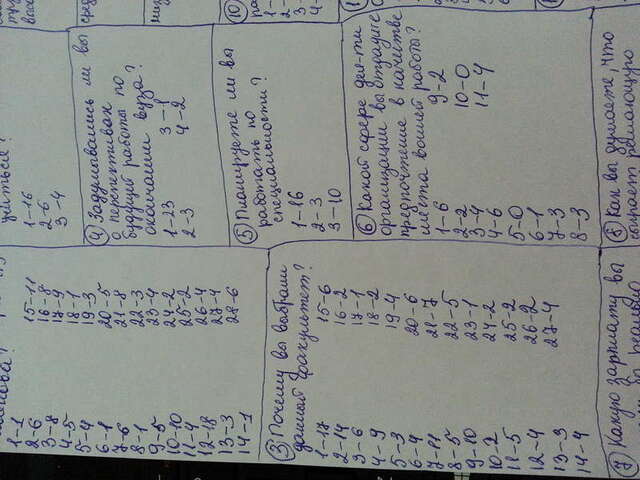 1-1
2-6
3-8
4-5
5-4
6-1
7-6
8-1
9-5
10-10
11-4
12-18
13-3
14-1
15-11
16-8
17-9
18-1
19-3
20-5
21-8
22-3
23-4
24-2
25-2
26-4
27-4
28-6
③ Почему вы выбрали
данный факультет?
1-17
2-14
3-6
4-9
5-3
6-4
7-11
8-5
9-10
10-2
11-5
12-4
13-3
14-4
15-6
16-2
17-1
18-2
19-4
20-6
21-7
22-5
23-1
24-2
25-2
26-2
27-4
⑦ Какую зарплату вы
учиться?
1-16
2-6
3-4
④ Задумывались ли вы
о перспективах
будущей работы по
окончании вуза?
1-23
2-3
3-1
4-2
⑤ Планируете ли вы
работать по
специальности?
1-16
2-3
3-10
⑥ Какой сфере дея-ти
организации вы отдадите
предпочтение в качестве
места вашей работы?
1-6
2-2
3-4
4-6
5-0
6-1
7-3
8-3
9-2
10-0
11-4
⑧ Как вы думаете, что
решающую
⑩